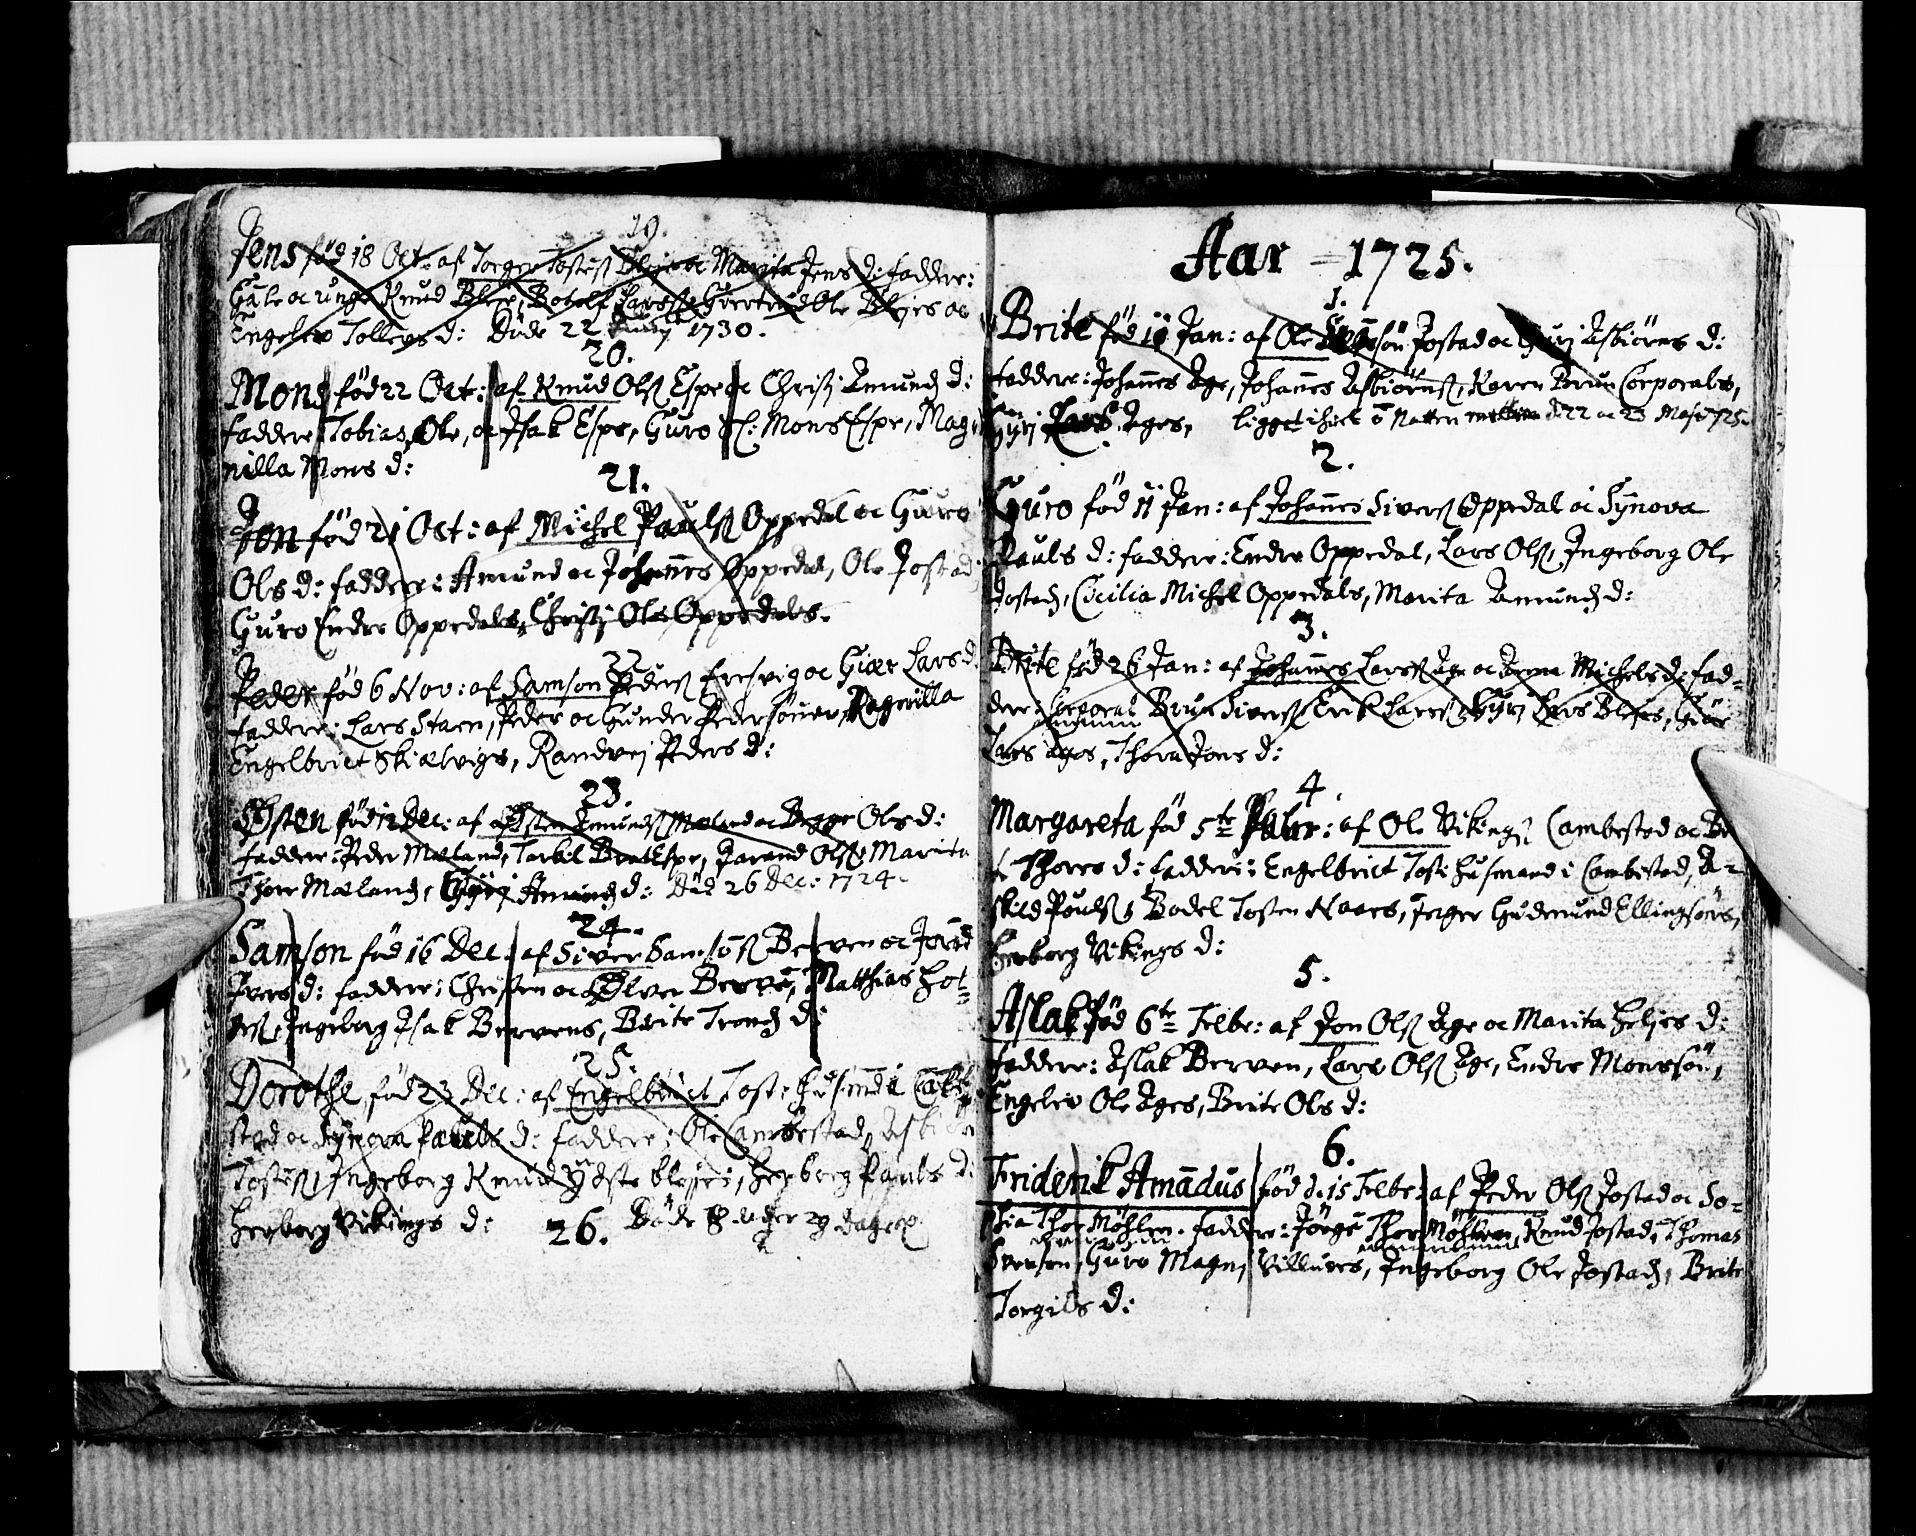 19.
Jens fød 18 Oct: af Torger Tostens Bleje oc Marita Jens d: faddere:
oc unge Knud Bleje, Botolf Larss, Giertrud Ole Blejes oc
Engelev Tollevs d: Døde 22 1730.
20.
Mons fød 22 Oct: af Knud Ols Espe oc Christj Amunds d:
faddere Tobias, Ole, oc Isak Espe, Guro Mons Espe, Mag
nilla Mons d:
21.
Jon fød 21 Oct: af Michel Pauls Oppedal oc Guro
Ols d: faddere: Amund oc Johannes Oppedal, Ole Jostad
Guro Endre Oppedals, Christj Ole Oppedals.
22
Peder fød 6 Nov: af Samson Peders Fresvig oc Giær Lars d:
faddere: Lars Staen, Peder oc Gunder Pedersønner, Ragnilla
Engelbrict Skielvigs, Randvej Peders d:
23.
Østen fød 12 Dec: af Østen Amunds Mæland oc Ols d:
faddere: Peder Mæland, Torkil Espe, Jarand Ols, Marita
Thore Mælands, Gyrj Amunds d: Død 26 Dec: 1724.
24.
Samson fød 16 Dec: af Siver Samsons Berven oc Jorand
Ivers d: faddere: Christen oc Ølver Berve, Matthias Hot=
nes, Ingeborg Isak Bervens, Brite Tronds d:
25.
Dorothe, fød 23 Dec: af Engelbrict Tost: Husmd i
stad oc Synova Pauls d: faddere: Ole Cambestad,
Tostens, Ingeborg Knud Ydste Bleje, Herborg Pauls d:
Herborg Vikings d: Døde 8 Uger
26.
Aar 1725.
1.
Brite fød 10 Jan: af Ole Jostad oc Gurj Asbiørns d:
faddere: Johannes Age, Johannes Asbiørns, Karen Brun Corporals,
Gyrj Lars Ages, ligget ihiel om Natten mellem d: 22 oc 23 Maj 1725.
2.
Guro fød 11 Jan: af Johannes Sivers Oppedal oc Synova
Pauls d: faddere: Endre Oppedal, Lars Ols, Ingeborg Ole
Jostads, Cicilia Michel Oppedals, Marita Amunds d:
3.
Brite fød 26 Jan: af Johannes Larss Age oc Anna Michels d: fad=
dere: Corporal Brun Sivers, Erik Larss, Gyrj Lars Blejes, Giør
Lars Ages, Thora Jons d:
4.
Margareta fød 5te Febr: af Ole Vikings Cambestad oc
Thores d: faddere: Engelbrict Tost: Husmand i Cambestad, A=
skild Pouls, Bodel Tosten Naaes, Inger Gudmund Ellingsøns,
Herborg Vikings d:
5.
Aslak fød 6te Febr: af Jon Ols Age oc Marita Heljes d:
faddere: Aslak Berven, Lars Ols Age, Endre Monssøn,
Engelev Ole Ages, Brite Ols d:
6.
Friderik Amadus fød d. 15 Febr: af Peder Ols Jostad oc So=
phia Thor Møhlen. faddere: Jørgen Thor Møhlen, Knud Jostad, Thomas
Svensen, Guro Magn, Ingeborg Ole Jostads, Brite
Torgils d: